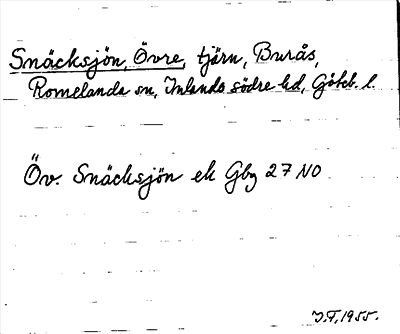 Snäcksjön, Övre, tjärn, Burås,
Romelanda sn, Inlands södre hd, Göteb. l.
Öv. Snäcksjön ek Gbg 27 NO
J.F. 1955.